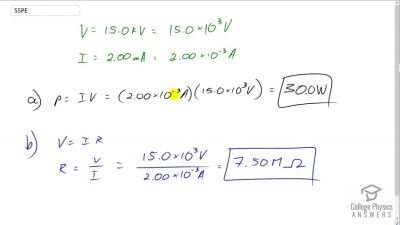 55PE
V = 15.0 kV = 15.0×10³ V
I = 2.00 mA = 2.00×10⁻³ A
a) P = IV = (2.00×10⁻³ A)(15.0×10³ V) = 30.0W
b) V = I R
R = V/I = 15.0×10³ V / 2.00×10⁻³ A = 7.50 M Ω
College Physics
ANSWERS.COM